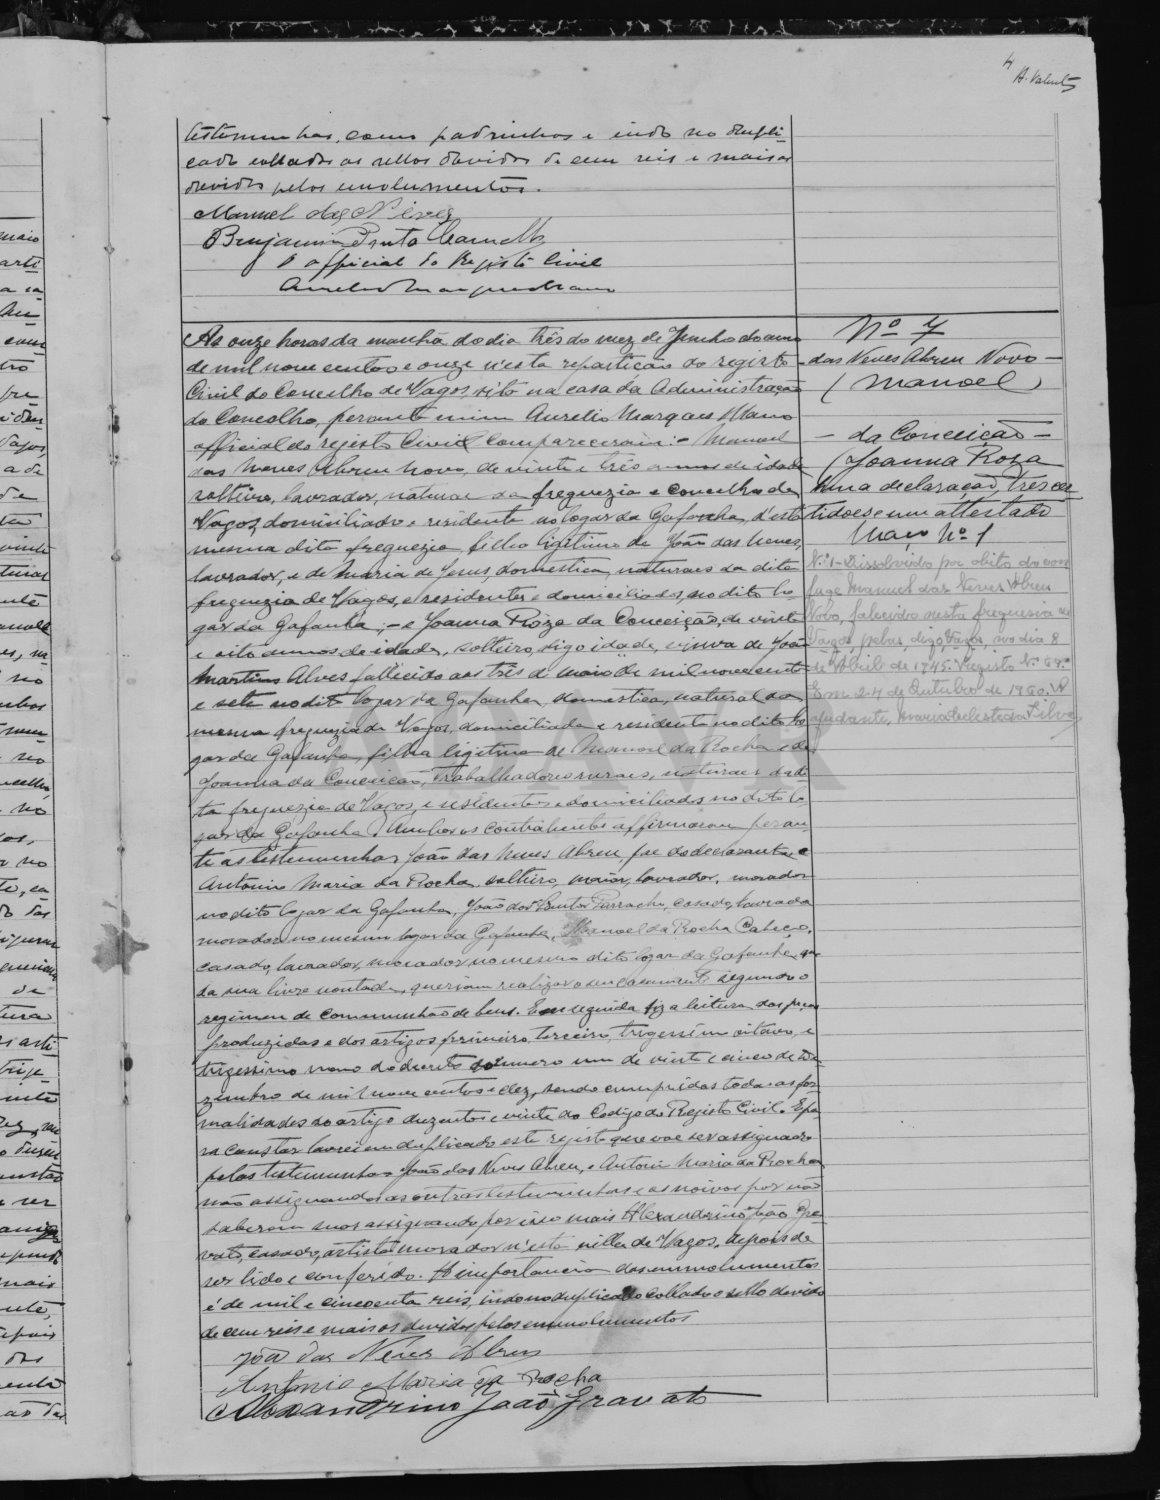 4
A. Valente
testemunhas, como padrinhos e indo no dupli-
cado collados os sellos devidos de cem reis e mais os
devidos pelos emolumentos.
Manuel das Neves
Benjamim Pinto Camello
O official do Registo Civil
Aurelio Marques Mano
As onze horas da manhã do dia três do mez de Junho do anno
de mil nove centos e onze n'esta repartição do registo
Civil do Concelho de Vagos, sito na casa da Administração
do Concelho, perante mim Aurelio Marques Mano
official do registo Civil compareceram:- Manuel
das Neves Abreu Novo, de vinte e três annos de idade
solteiro, lavrador, natural da freguezia e concelho de
Vagos, domiciliado e residente no logar da Gafanha, d'esta
mesma dita freguezia, filho ligitimo de João das Neves,
lavrador, e de Maria de Jesus, domestica, naturaes da dita
freguezia de Vagos, e residentes e domiciliados, no dito lo-
gar da Gafanha; - e Joanna Roza da Conceição, de vinte
e oito annos de idade, solteiro, digo idade, viuva de João
Martins Alves fallecido aos três de maio de mil nove cento
e sete no dito logar da Gafanha, domestica, natural da
mesma freguezia de Vagos, domiciliada e residente no dito lo-
gar da Gafanha, filha ligitima de Manoel da Rocha e de
Joanna da Conceição, trabalhadores ruraes, naturaes da di-
ta freguezia de Vagos, e residentes e domiciliados no dito lo-
gar da Gafanha. Ambos os contrahentes affirmaram peran-
te as testemunhas João das Neves Abreu pae do declarante, e
Antonio Maria da Rocha, solteiro, maior, lavrador, morador
no dito logar da Gafanha, João dos Santos Parracho, casado, lavrador
morador no mesmo logar da Gafanha, Manoel da Rocha Cabeço,
casado, lavrador, morador no mesmo dito logar da Gafanha, que
da sua livre vontade, queriam realizar o seu casamento segundo o
regimen de communhão de bens. Em seguida fiz a leitura das peças
produzidas e dos artigos primeiro, terceiro, trigessimo oitavo, e
trigessimo nono do decreto numero um de vinte e cinco de De-
zembro de mil nove centos e dez, sendo cumpridas todas as for-
malidades do artigo duzentos e vinte do Codigo do Registo Civil. E pa-
ra constar lavrei em duplicado este registo que vae ser assignado
pelas testemunhas João das Neves Abreu, e Antonio Maria da Rocha
não assignando as outras testemunhas e os noivos por não
saberem mas assignando por isso mais Alexandrino João Gra-
vato, casado, artista morador n'esta villa de Vagos, depois de
ser lido e conferido. A importancia dos emolumentos
é de mil e cincoenta reis, indo no duplicado collado o sello devido
de cem reis e mais os devidos pelos emolumentos
João das Neves Abreu
Antonio Maria da Rocha
Alexandrino João Gravato
Nº 7
das Neves Abreu Novo -
(Manoel)
- da Conceição -
(Joanna Roza
Numa declaração, tres cer-
tidões e um attestado
Maço Nº 1
N.º 1 - Dissolvido por obito do con-
juge Manuel das Neves Abreu
Novo, falecido nesta freguesia de
Vagos, pelas, digo, Vagos, no dia 8
de Abril de 1945. Registo Nº
Em 24 de Outubro de 1960. A
ajudante, Maria Celeste da Silva